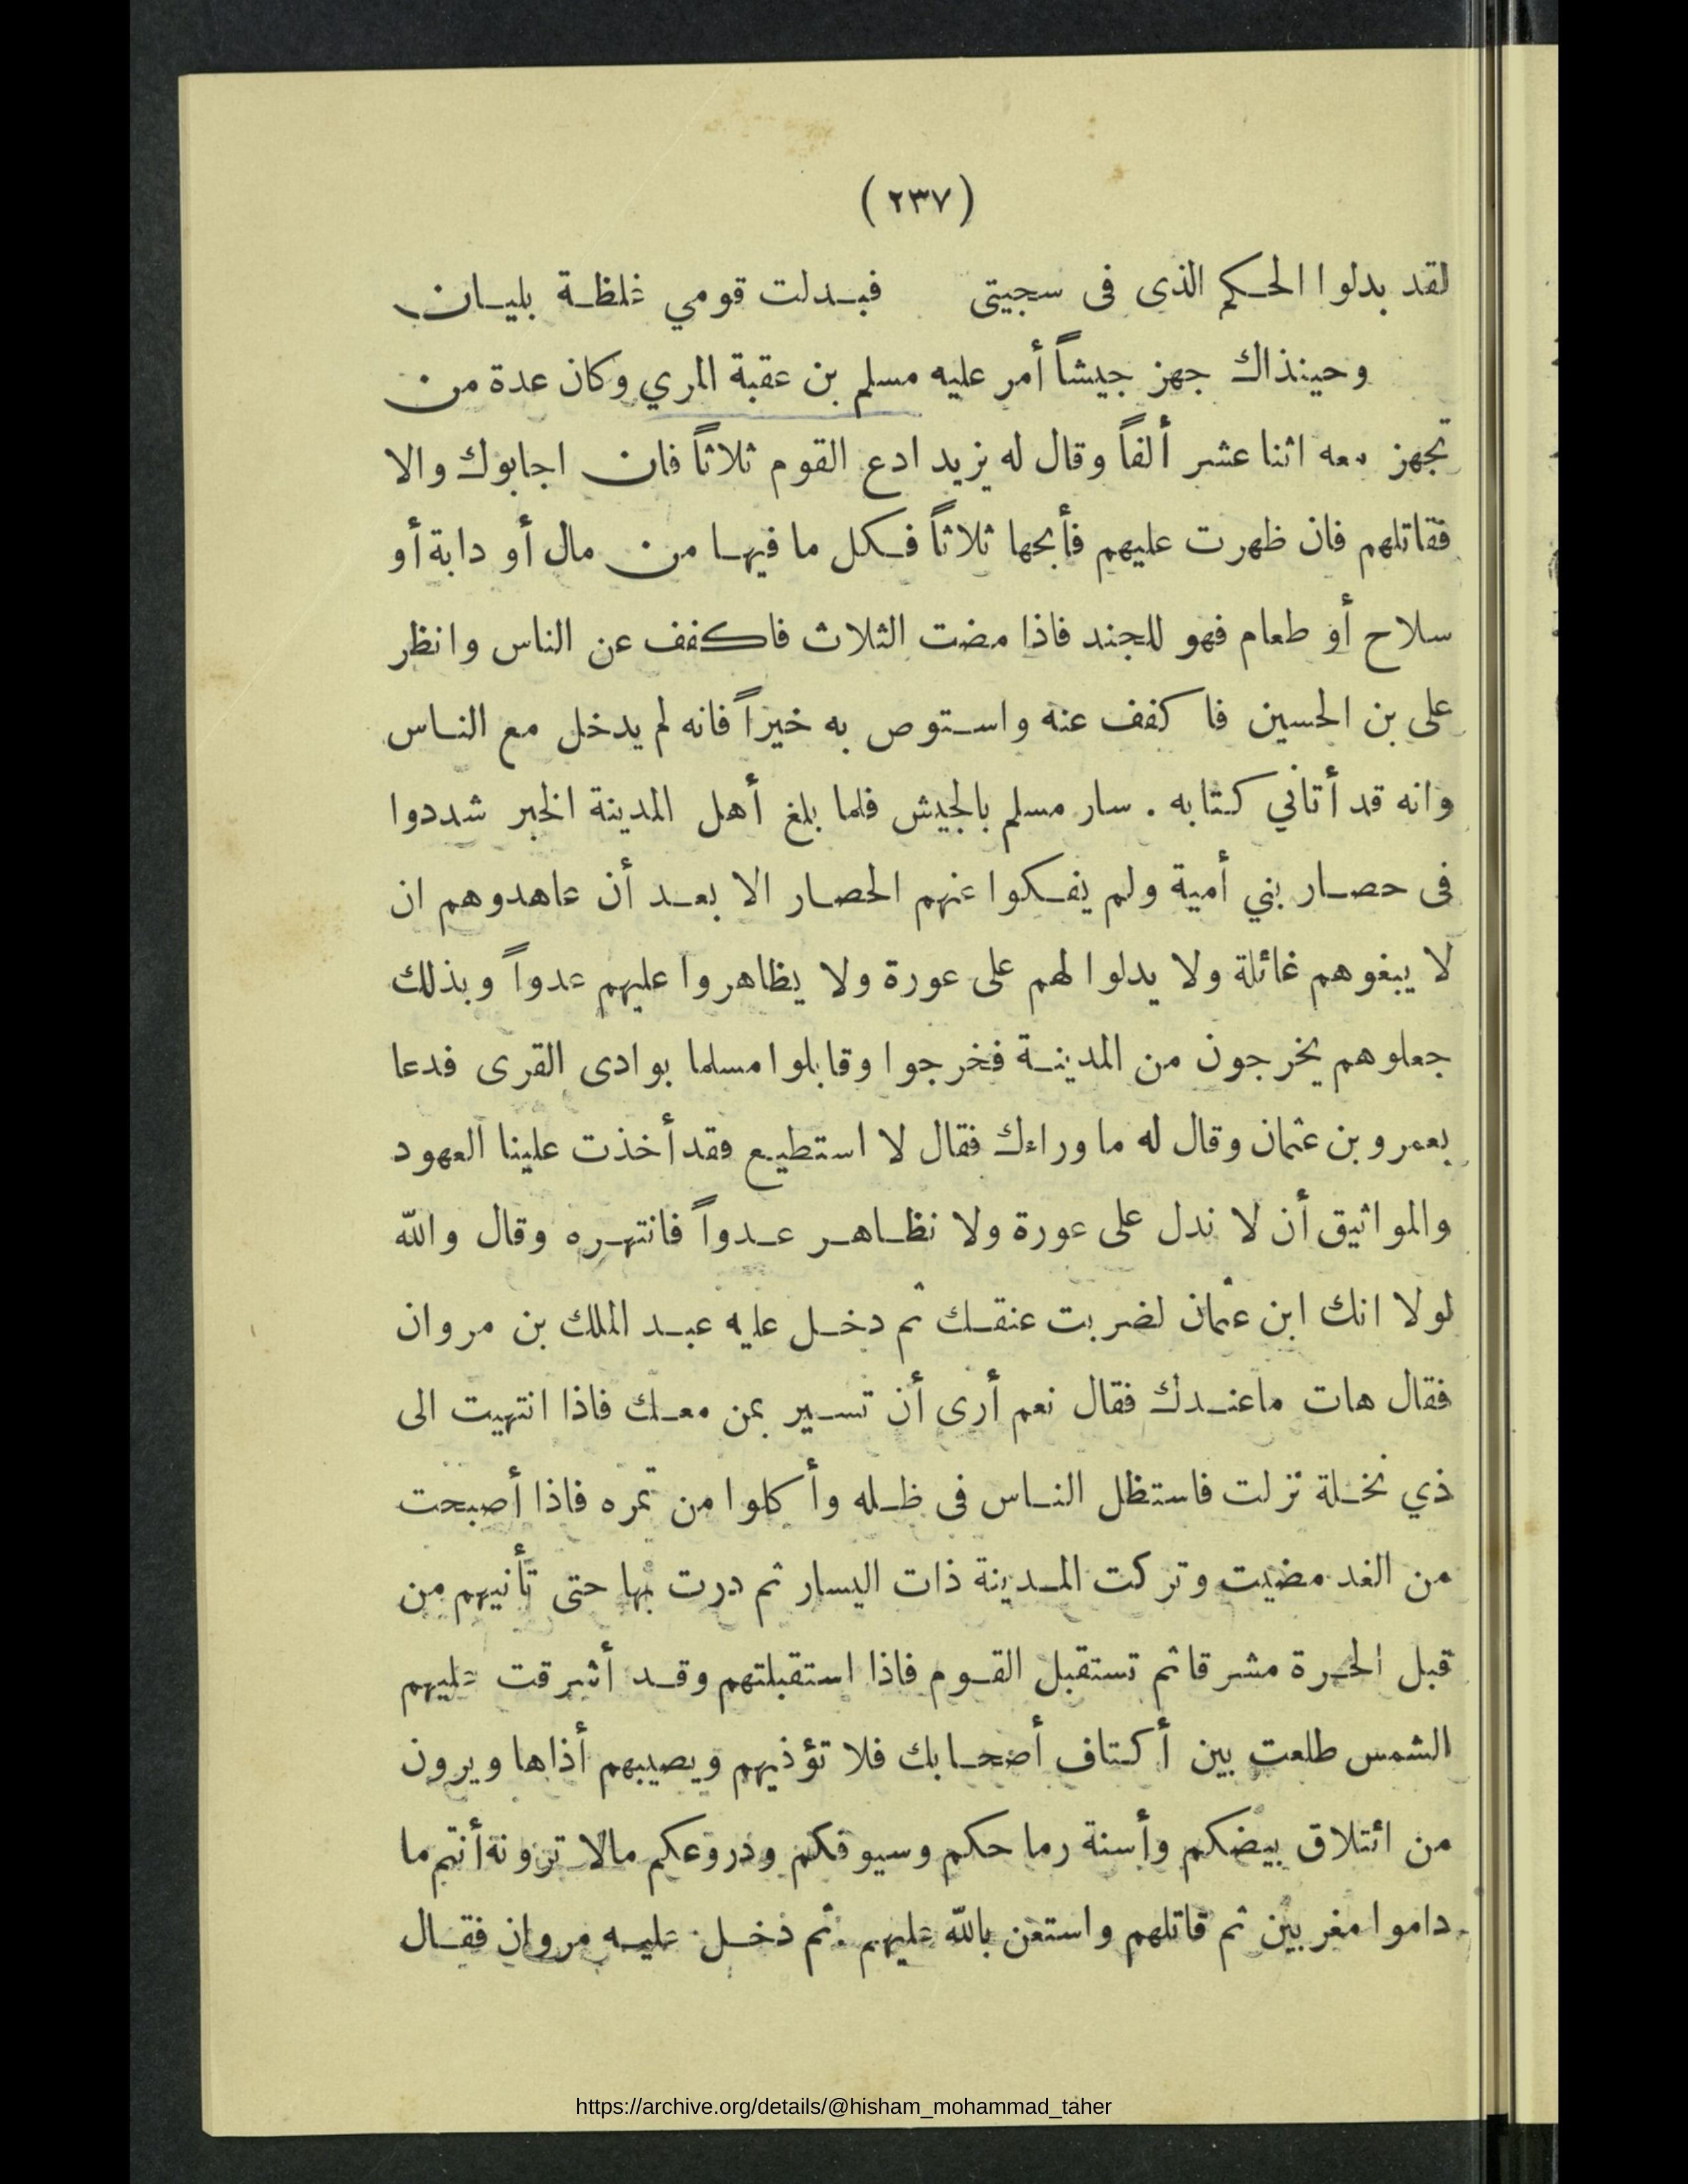 (٢٣٧)
لقد بدلوا الحكم الذى فى سجيتى فبدلت قومي غلظة بليان
وحينذاك جهز جيشاً أمر عليه مسلم بن عقبة المري وكان عدة من
تجهز معه اثنا عشر ألفاً وقال له يزيد ادع القوم ثلاثاً فان اجابوك والا
فقاتلهم فان ظهرت عليهم فأبحها ثلاثاً فكل ما فيها من مال أو دابة أو
سلاح أو طعام فهو للجند فاذا مضت الثلاث فاكفف عن الناس وانظر
على بن الحسين فاكفف عنه واستوص به خيراً فانه لم يدخل مع الناس
وانه قد أتاني كتابه . سار مسلم بالجيش فلما بلغ أهل المدينة الخبر شددوا
فى حصار بني أمية ولم يفكوا عنهم الحصار الا بعد أن عاهدوهم ان
لا يبغوهم غائلة ولا يدلوا لهم على عورة ولا يظاهروا عليهم عدواً وبذلك
جعلوهم يخرجون من المدينة فخرجوا وقابلوا مسلما بوادى القرى فدعا
بعمرو بن عثمان وقال له ما وراءك فقال لا استطيع فقد أخذت علينا العهود
والمواثيق أن لا ندل على عورة ولا نظاهر عدواً فانتهره وقال والله
لولا انك ابن عثمان لضربت عنقك ثم دخل عليه عبد الملك بن مروان
فقال هات ماعندك فقال نعم أرى أن تسير بمن معك فاذا انتهيت الى
ذي نخلة نزلت فاستظل الناس فى ظله وأكلوا من تمره فاذا أصبحت
من الغد مضيت وتركت المدينة ذات اليسار ثم درت بها حتى تأتيهم من
قبل الحرة مشرقا ثم تستقبل القوم فاذا استقبلتهم وقد أشرقت عليهم
الشمس طلعت بين أكتاف أصحابك فلا تؤذيهم ويصيبهم أذاها ويرون
من ائتلاق بيضكم وأسنة رماحكم وسيوفكم ودروعكم مالا ترونه أنتم ما
داموا مغربين ثم قاتلهم واستعن بالله عليهم . ثم دخل عليه مروان فقال
https://archive.org/details/@hisham_mohammad_taher